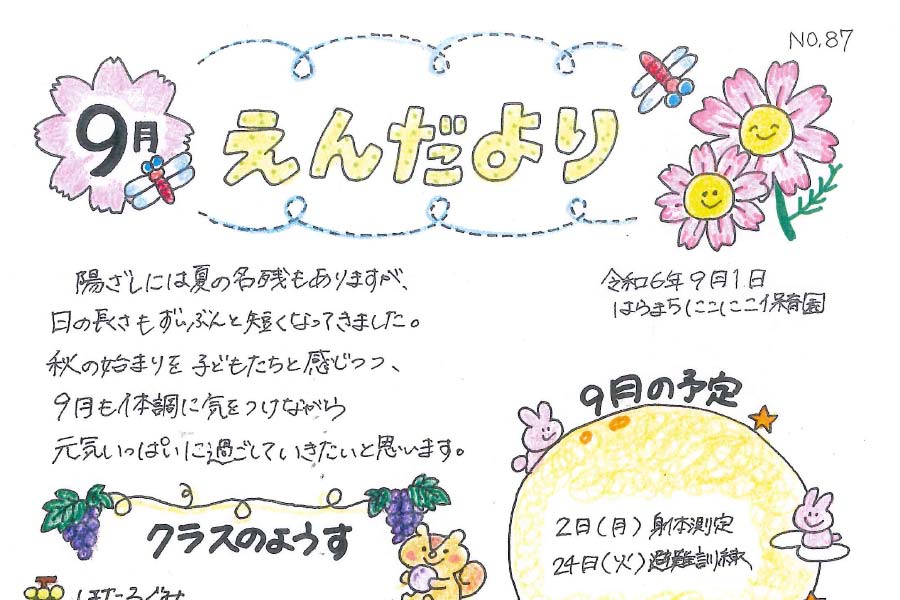 NO.87
9月
えんだより
陽ざしには夏の名残もありますが、
日の長さもずいぶんと短くなってきました。
秋の始まりを子どもたちと感じつつ、
9月も体調に気をつけながら
元気いっぱいに過ごしていきたいと思います。
令和6年9月1日
はらまちにこにこ保育園
9月の予定
2日(月)身体測定
24日(火)避難訓練
クラスのようす